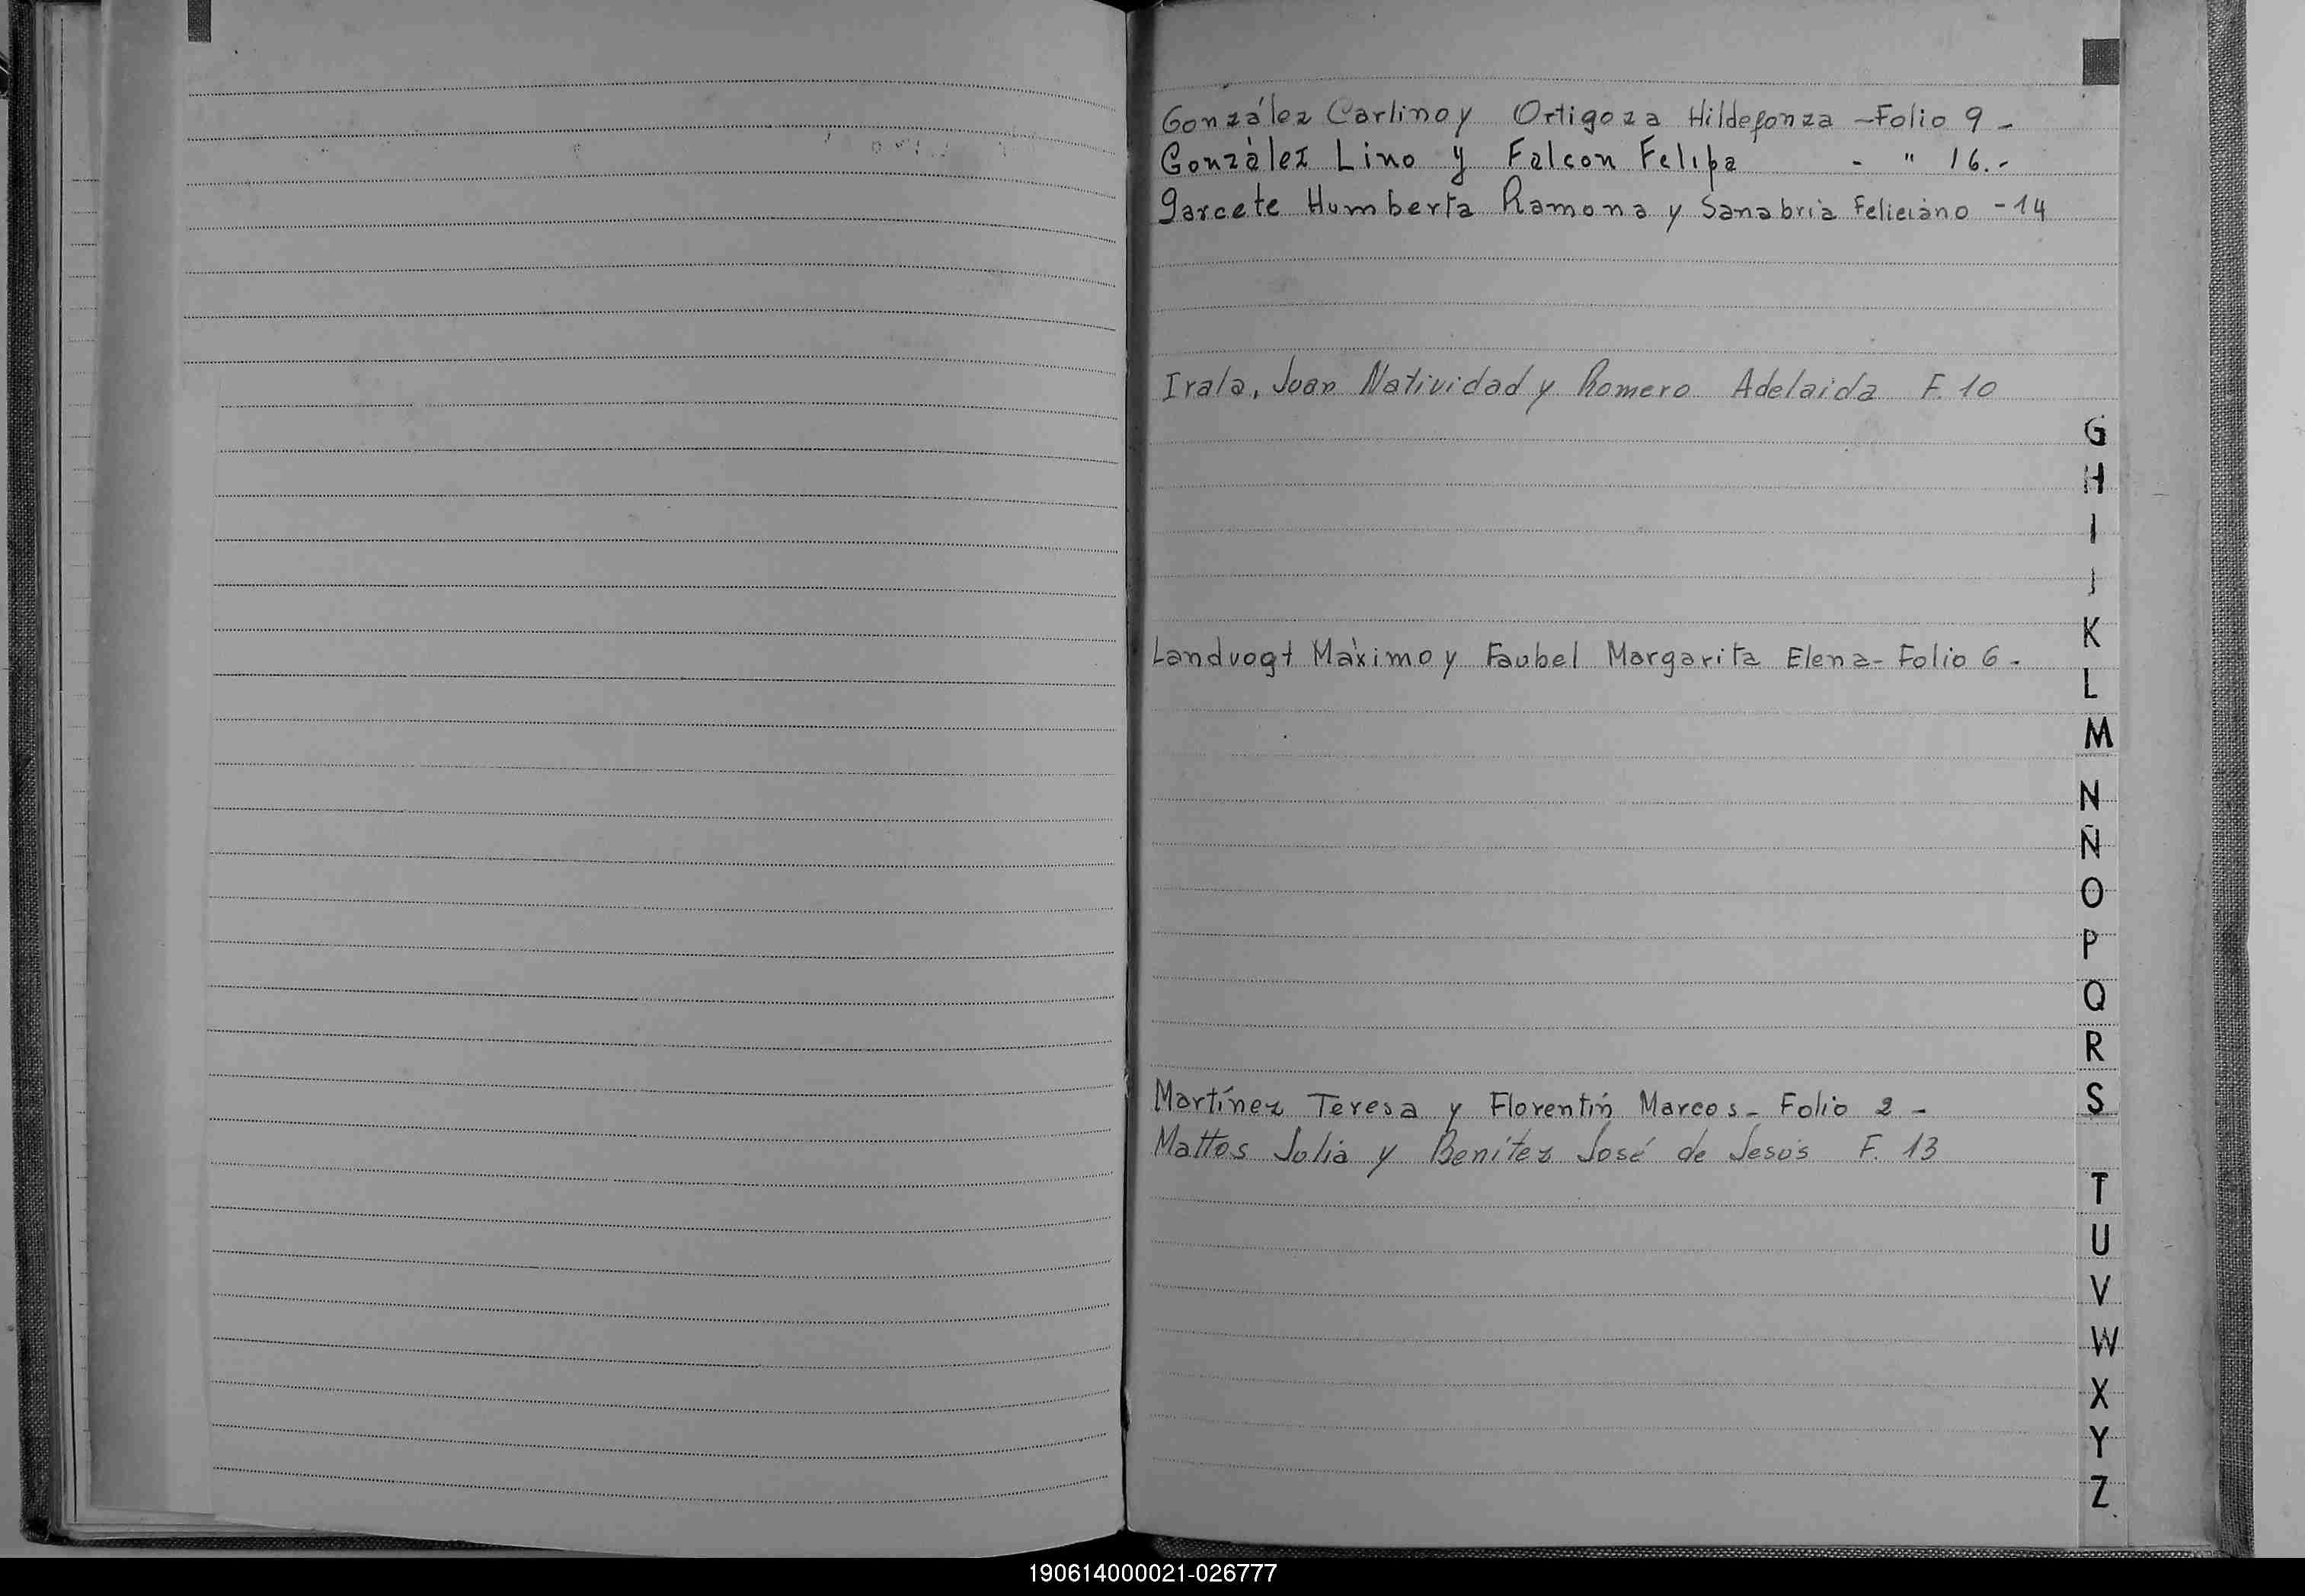 González Carlino y Ortigoza Hildefonza - Folio 9 -
Gonzàlez Lino y Falcon Felipa - " 16.-
garcete Humberta Ramona y Sanabria Feliciano - 14
Irala, Juan Natividad y Romero Adelaida F. 10
G
H
I
J
K
Landvogt Màximo y Faubel Margarita Elena - Folio 6 -
L
M
N
Ñ
O
P
Q
R
S
Martínez Teresa y Florentín Marcos - Folio 2 -
Mattos Julia y Benítez José de Jesús F. 13
T
U
V
W
X
Y
Z
190614000021-026777